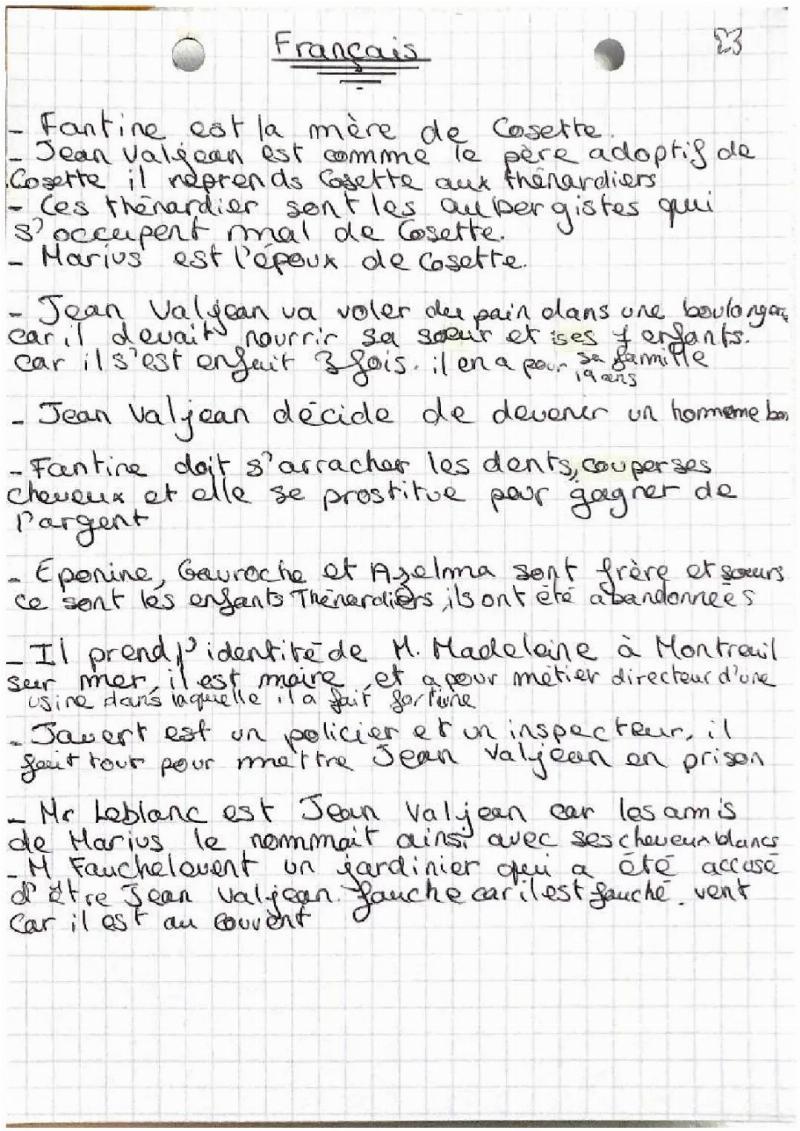 Français
23
- Fantine est la mère de Cosette.
- Jean Valjean est comme le père adoptif de
Cosette il reprends Cosette aux thénardiers
- Ces thénardier sont les aubergistes qui
s'occupent mal de Cosette.
- Marius est l'époux de Cosette.
- Jean Valjean va voler du pain dans une boulanger
car il devait nourrir sa sœur et ses 7 enfants.
car il s'est enfuit 3 fois. il en a pour sa famille
19 ans
- Jean Valjean décide de devenir un hommme bon
- Fantine doit s'arracher les dents, couper ses
cheveux et elle se prostitue pour gagner de
l'argent
- Eponine, Gavroche et Azelma sont frère et sœurs
ce sont les enfants Thénardiers, ils ont été abandonnées
- Il prend l'identité de M. Madeleine à Montreuil
sur mer, il est maire, et a pour métier directeur d'une
usine dans laquelle il a fait fortune
- Javert est un policier et un inspecteur, il
fait tout pour mettre Jean Valjean en prison
- Mr Leblanc est Jean Valjean car les amis
de Marius le nommmait ainsi avec ses cheveux blancs
- M Fauchelouent un jardinier qui a été accusé
d'être Jean Valjean. fauche car il est fauché. vent
car il est au couvent